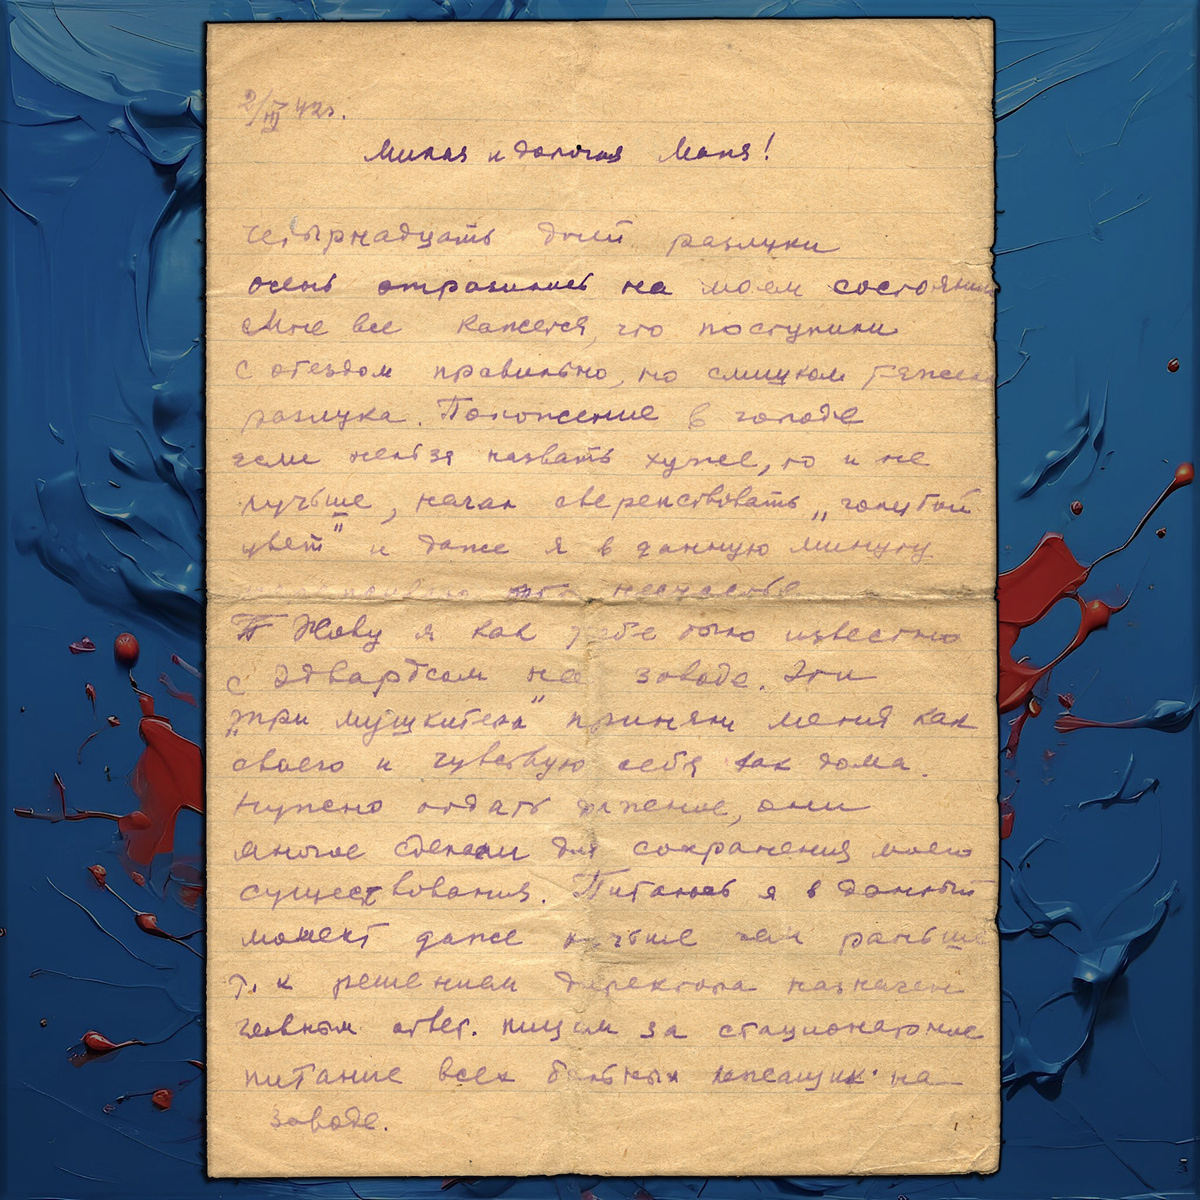 2/III 42г.
Милая и дорогая Маня!
Четырнадцать дней разлуки
очень отразились на моем состоянии
Мне все кажется, что поступили
с отездом правильно, но слишком тяжела
разлука. Положение в городе
если нельзя назвать хуже, то и не
лучьше, начал сверепствовать „голубой
цвет" и даже я в данную минуту
несчастье
Живу я как тебе было известно
с Эдвардсом на заводе. Эти
„три мушкитера" приняли меня как
своего и чувствую себя как дома.
Нужно отдать должное, они
многое сделали для сохранения моего
существования. Питаюсь я в данный
момент даже лучьше чем раньше
т. к решением директора назначен
главным ответ. лицом за стационарное
питание всех больных лежащих на
заводе.